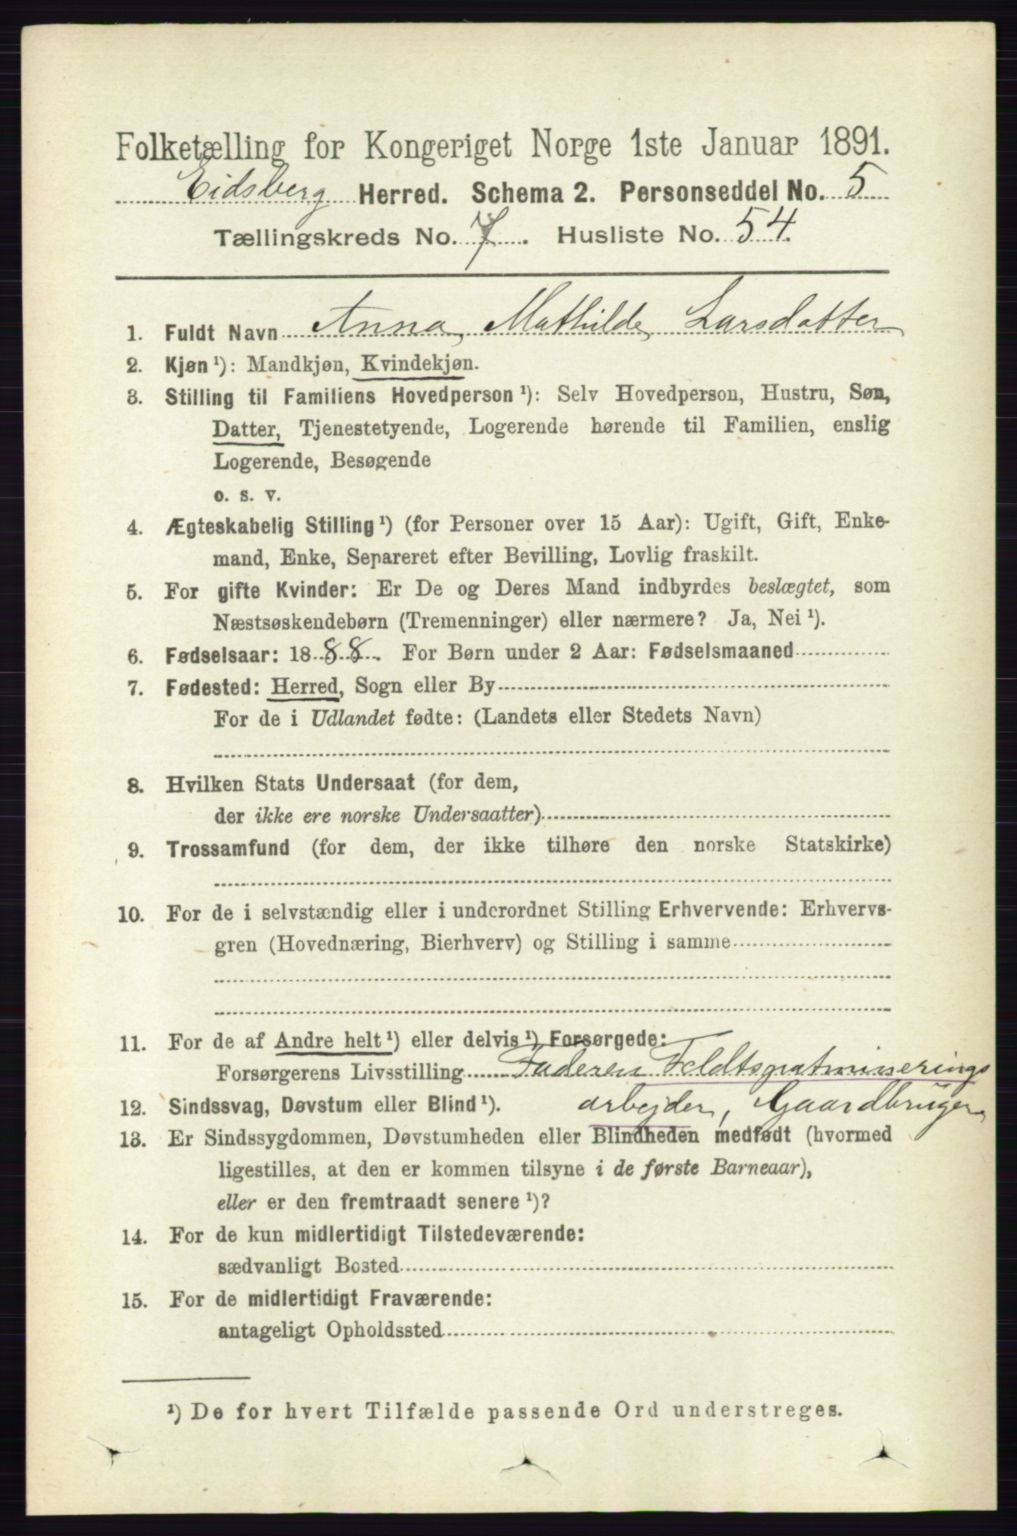 Folketælling for Kongeriget Norge 1ste Januar 1891.
Eidsberg Herred. Schema 2. Personseddel No. 5
Tællingskreds No. 7. Husliste No. 54.
1. Fuldt Navn Anna Mathilde Larsdatter
2. Kjøn ¹): Mandkjøn, Kvindekjøn.
3. Stilling til Familiens Hovedperson ¹): Selv Hovedperson, Hustru, Søn,
Datter, Tjenestetyende, Logerende hørende til Familien, enslig
Logerende, Besøgende
o. s. v.
4. Ægteskabelig Stilling ¹) (for Personer over 15 Aar): Ugift, Gift, Enke-
mand, Enke, Separeret efter Bevilling, Lovlig fraskilt.
5. For gifte Kvinder: Er De og Deres Mand indbyrdes beslægtet, som
Næstsøskendebørn (Tremenninger) eller nærmere? Ja, Nei ¹).
6. Fødselsaar: 1888. For Børn under 2 Aar: Fødselsmaaned
7. Fødested: Herred, Sogn eller By
For de i Udlandet fødte: (Landets eller Stedets Navn)
8. Hvilken Stats Undersaat (for dem,
der ikke ere norske Undersaatter)
9. Trossamfund (for dem, der ikke tilhøre den norske Statskirke)
10. For de i selvstændig eller i underordnet Stilling Erhvervende: Erhvervs-
gren (Hovednæring, Bierhverv) og Stilling i samme
11. For de af Andre helt ¹) eller delvis ¹) Forsørgede:
Forsørgerens Livsstilling Faderen Feldtspatminerings
12. Sindssvag, Døvstum eller Blind ¹). arbejder, Gaardbruger
13. Er Sindssygdommen, Døvstumheden eller Blindheden medfødt (hvormed
ligestilles, at den er kommen tilsyne i de første Barneaar),
eller er den fremtraadt senere ¹)?
14. For de kun midlertidigt Tilstedeværende:
sædvanligt Bosted
15. For de midlertidigt Fraværende:
antageligt Opholdssted
¹) De for hvert Tilfælde passende Ord understreges.